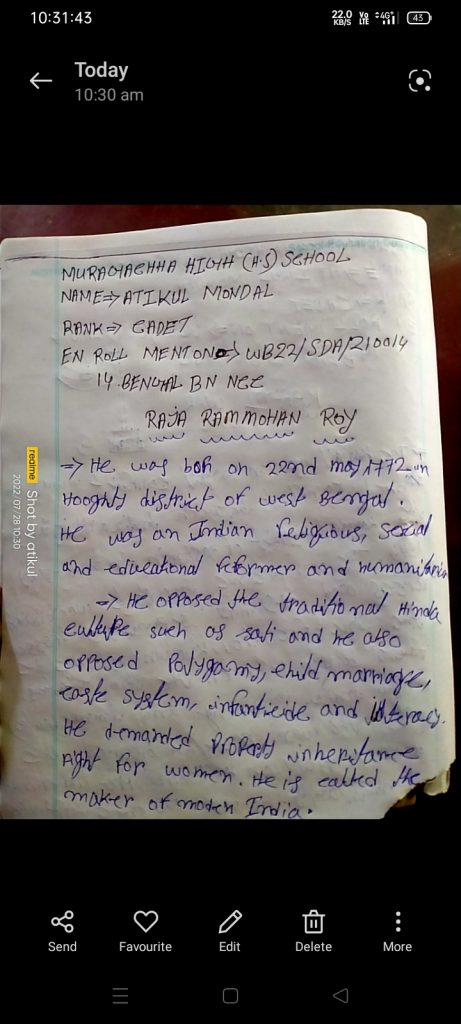 10:31:43
22.0 KB/S Vo LTE 4G+ 43
Today
10:30 am
MURAGACHHA HIGH (H.S) SCHOOL
NAME⇒ ATIKUL MONDAL
RANK⇒ CADET
EN ROLL MENT ON⇒ WB22/SDA/210014
14 BENGAL BN NCC
RAJA RAMMOHAN ROY
⇒ He was boh on 22nd may 1772 in
Hooghly district of west Bengal.
He was an Indian religious, social
and educational reformer and humanitarin
⇒ He opposed the traditional Hindu
culture such as sati and he also
opposed Polygamy, child marriage,
caste system, infanticide and illiteracy.
He demanded Property inheritance
right for women. He is called the
maker of moden India.
realme Shot by atikul
2022.07.28 10:30
Send Favourite Edit Delete More